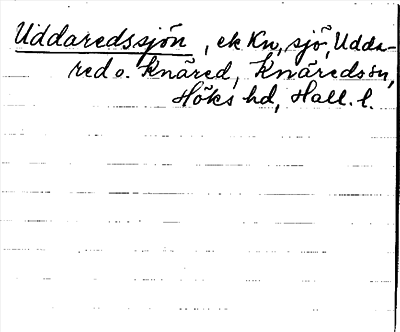 Uddaredssjön, ek Kn, sjö, Udda-
red o. Knäred, Knäreds sn,
Höks hd, Hall. l.